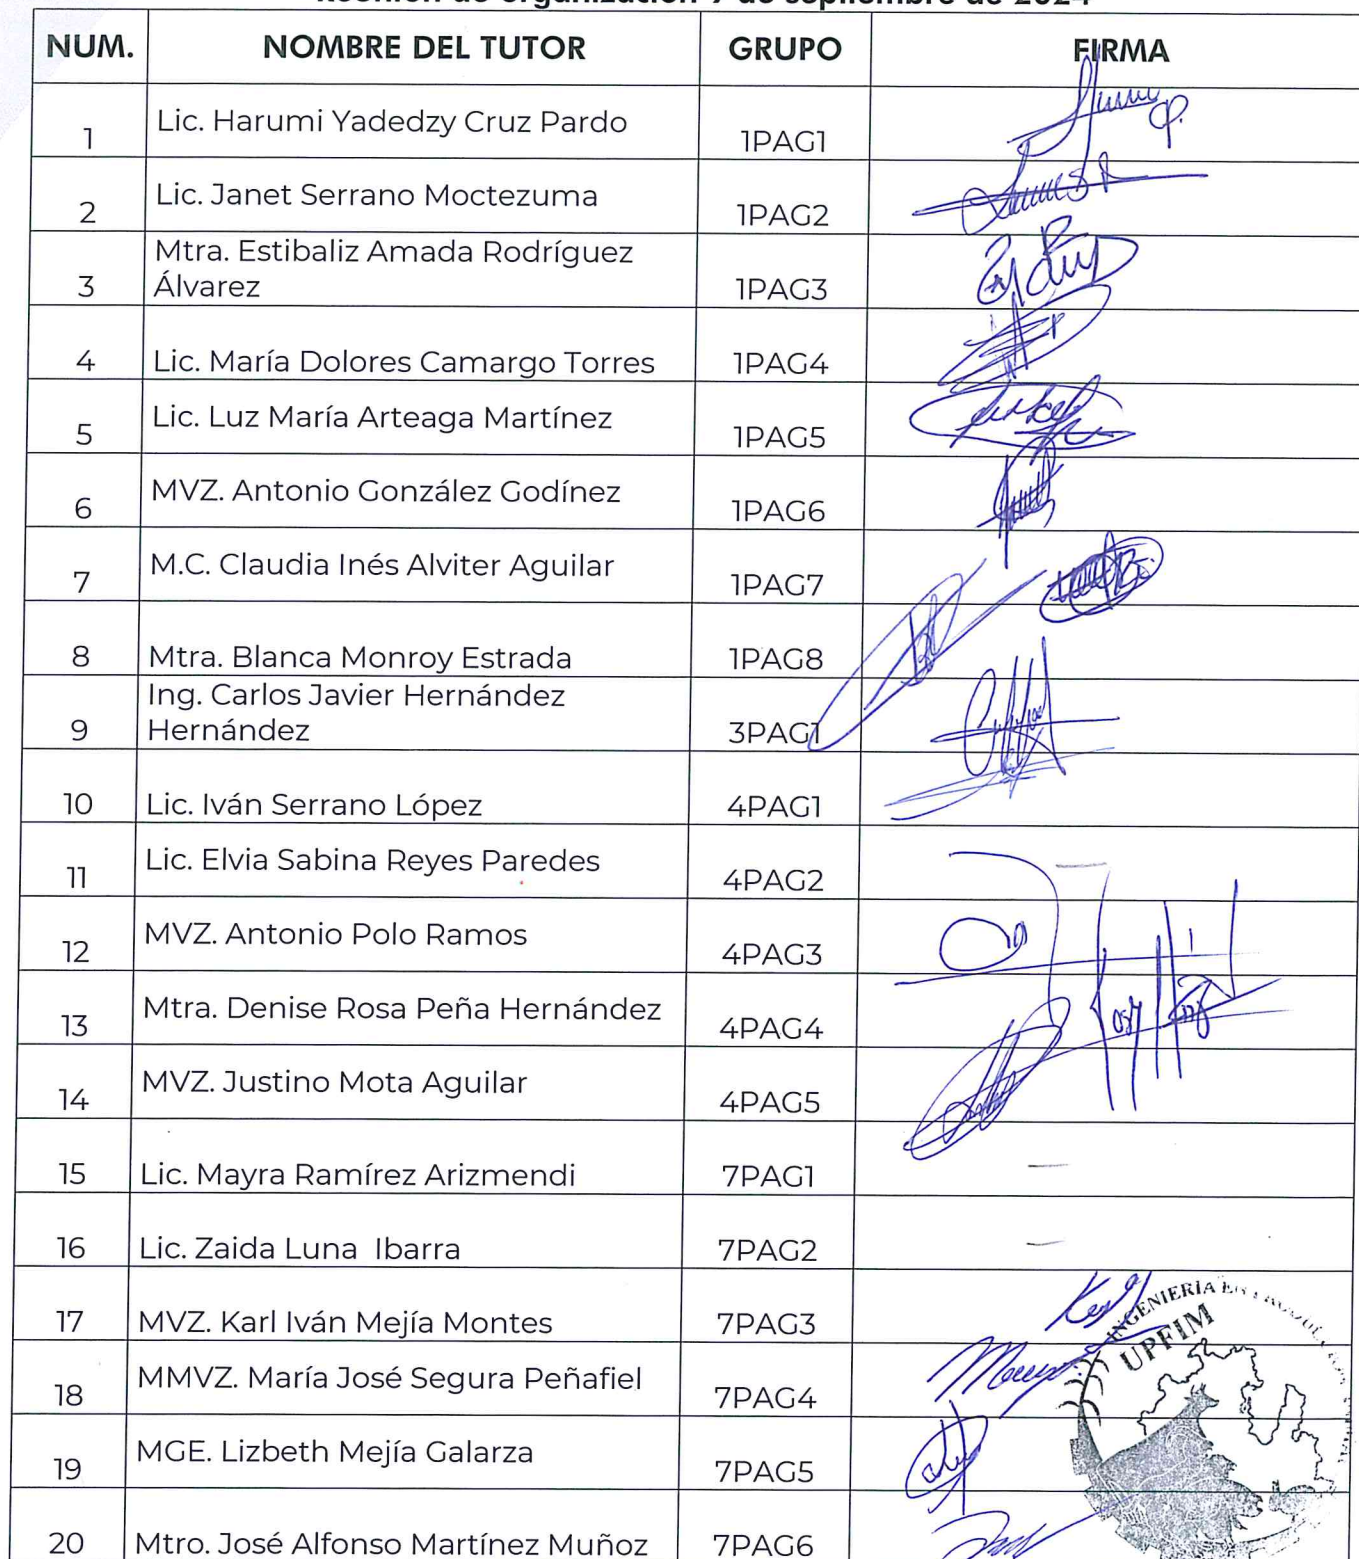 Reunión de organización 9 de septiembre de 2024
NUM. NOMBRE DEL TUTOR GRUPO FIRMA
1 Lic. Harumi Yadedzy Cruz Pardo 1PAG1
2 Lic. Janet Serrano Moctezuma 1PAG2
Mtra. Estibaliz Amada Rodríguez
3 Álvarez 1PAG3
4 Lic. María Dolores Camargo Torres 1PAG4
5 Lic. Luz María Arteaga Martínez 1PAG5
6 MVZ. Antonio González Godínez 1PAG6
7 M.C. Claudia Inés Alviter Aguilar 1PAG7
8 Mtra. Blanca Monroy Estrada 1PAG8
Ing. Carlos Javier Hernández
9 Hernández 3PAG1
10 Lic. Iván Serrano López 4PAG1
11 Lic. Elvia Sabina Reyes Paredes 4PAG2
12 MVZ. Antonio Polo Ramos 4PAG3
13 Mtra. Denise Rosa Peña Hernández 4PAG4
14 MVZ. Justino Mota Aguilar 4PAG5
15 Lic. Mayra Ramírez Arizmendi 7PAG1 —
16 Lic. Zaida Luna Ibarra 7PAG2 —
17 MVZ. Karl Iván Mejía Montes 7PAG3
INGENIERIA EN
UPFIM
18 MMVZ. María José Segura Peñafiel 7PAG4
19 MGE. Lizbeth Mejía Galarza 7PAG5
20 Mtro. José Alfonso Martínez Muñoz 7PAG6